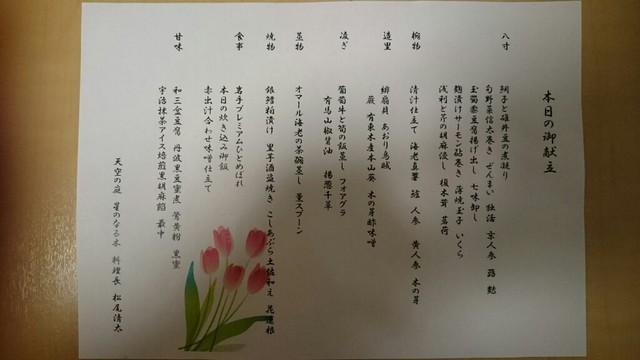 本日の御献立
八寸
鯛子と雄丹豆の煮凝り
旬野菜信太巻き ぜんまい 独活 京人参 蕗 麩
玉蜀黍豆腐揚げ出し 七味卸し
麹漬けサーモン砧巻き 薄焼玉子 いくら
浅利と芹の胡麻浸し 榎木茸 茗荷
椀物
清汁仕立て 海老真薯 独活 人参 黄人参 木の芽
造里
緋扇貝 あおり烏賊
蕨 有東木産本山葵 木の芽酢味噌
凌ぎ
葡萄牛と筍の飯蒸し フォアグラ
有馬山椒醤油 揚葱千草
蒸物
オマール海老の茶碗蒸し 菫スプーン
焼物
銀鱈粕漬け 里芋酒盗焼き こしあぶら土佐和え 花蓮根
食事
岩手プレミアムひとめぼれ
本日の炊き込み御飯
赤出汁合わせ味噌仕立て
甘味
和三盆豆腐 丹波黒豆蜜煮 鶯黄粉 黒蜜
宇治抹茶アイス焙煎黒胡麻餡 最中
天空の庭 星のなる木 料理長 松尾清太